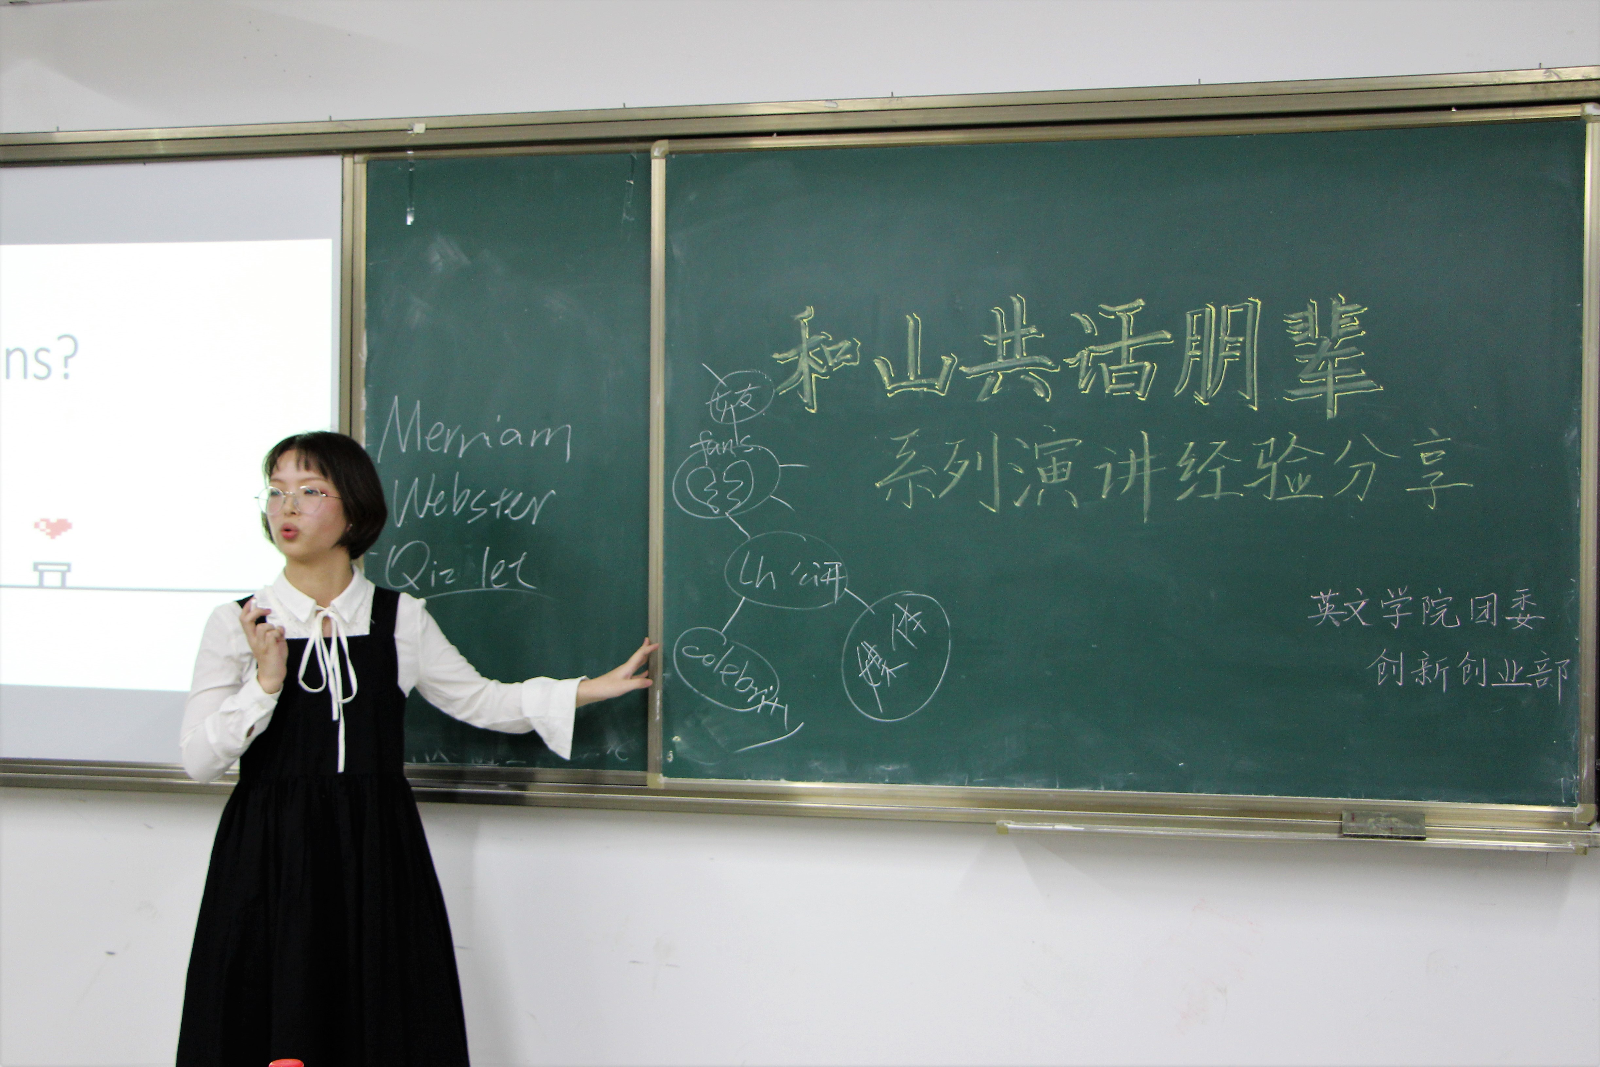 ns?
Merriam
Webster
Qizlet
和山共话朋辈
系列演讲经验分享
英文学院团委
创新创业部
fans
celebrity
媒体